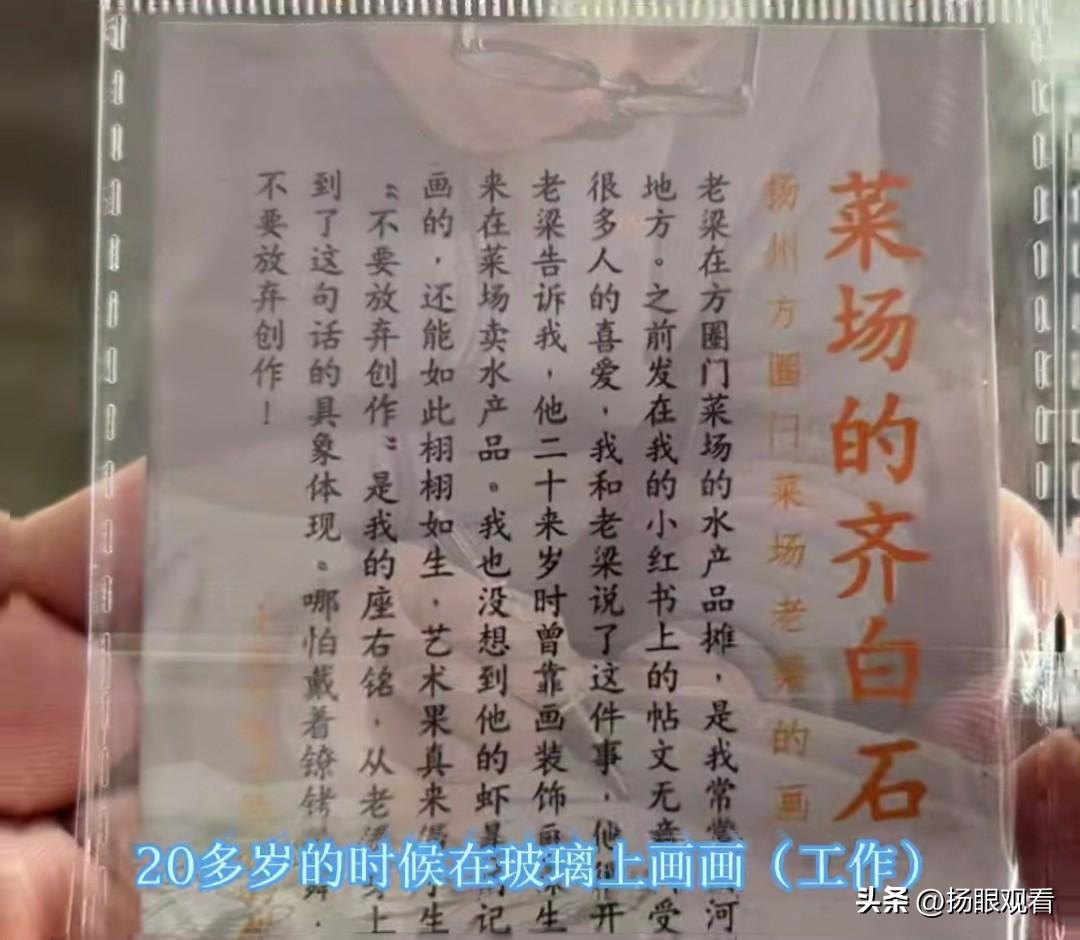 菜场的齐白石
扬州方圈门菜场老梁的画
老梁在方圈门菜场的水产品摊，是我常常河
地方。之前发在我的小红书上的帖文无意，受
很多人的喜爱，我和老梁说了这件事，他很开
老梁告诉我，他二十来岁时曾靠画装饰画生
来在菜场卖水产品。我也没想到他的虾是记
画的，还能如此栩栩如生，艺术果真来于生
“不要放弃创作”是我的座右铭，从老梁身上
到了这句话的具象体现。哪怕戴着镣铐舞，
不要放弃创作！
20多岁的时候在玻璃上画画（工作）
头条 @扬眼观看